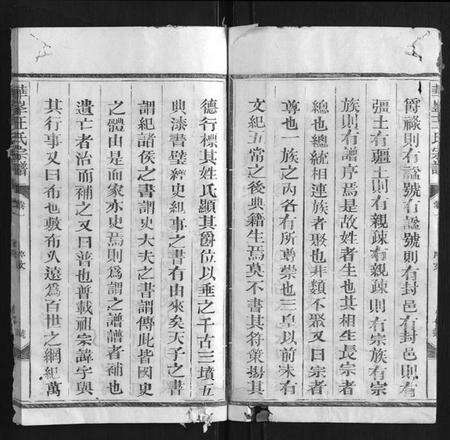 爵祿則有諡號有諡號則有封邑有封邑則有
疆土有疆土則有親疎有親疎則有宗族有宗
族則有譜序焉是故姓者生也其相生長宗者
總也總統相連族者聚也非類不聚又曰宗者
尊也一族之內各有所尊崇也三皇以前未有
文紀五常之後典籍生焉莫不書其符策揚其
華峯王氏宗譜
德行標其姓氏顯其爵位以垂之千古三墳五
典漆書壁經史組事之書有由來矣天子之書
謂紀諸侯之書謂史大夫之書謂傳此皆國史
之體由是而家亦史焉則為謂之譜譜者補也
遺亡者治而補之又曰普也普載祖宗諱字與
其行事又曰布也敷布久遠為百世之綱紀萬
華峯王氏宗譜